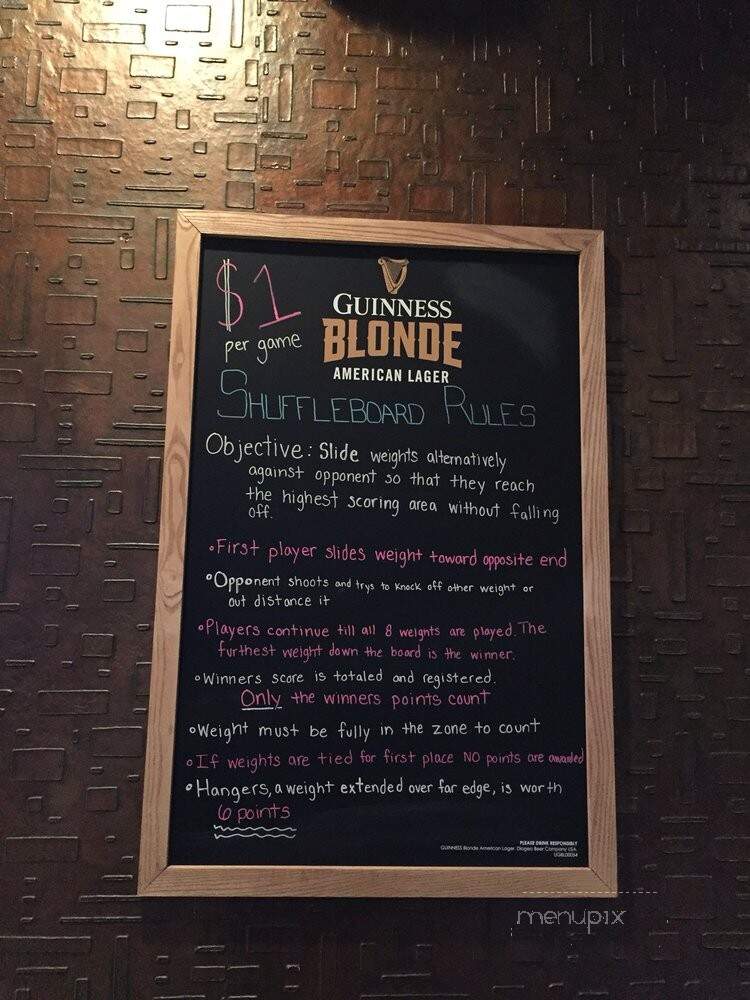 $1
per game
GUINNESS
BLONDE
AMERICAN LAGER
SHUFFLEBOARD RULES
Objective: Slide weights alternatively
against opponent so that they reach
the highest scoring area without falling
off.
•First player slides weight toward opposite end
•Opponent shoots and trys to knock off other weight or
out distance it
•Players continue till all 8 weights are played. The
furthest weight down the board is the winner.
•Winners score is totaled and registered.
Only the winners points count
•Weight must be fully in the zone to count
•If weights are tied for first place NO points are awarded
•Hangers, a weight extended over far edge, is worth
6 points
PLEASE DRINK RESPONSIBLY
GUINNESS Blonde American Lager. Diageo Beer Company USA.
menupix